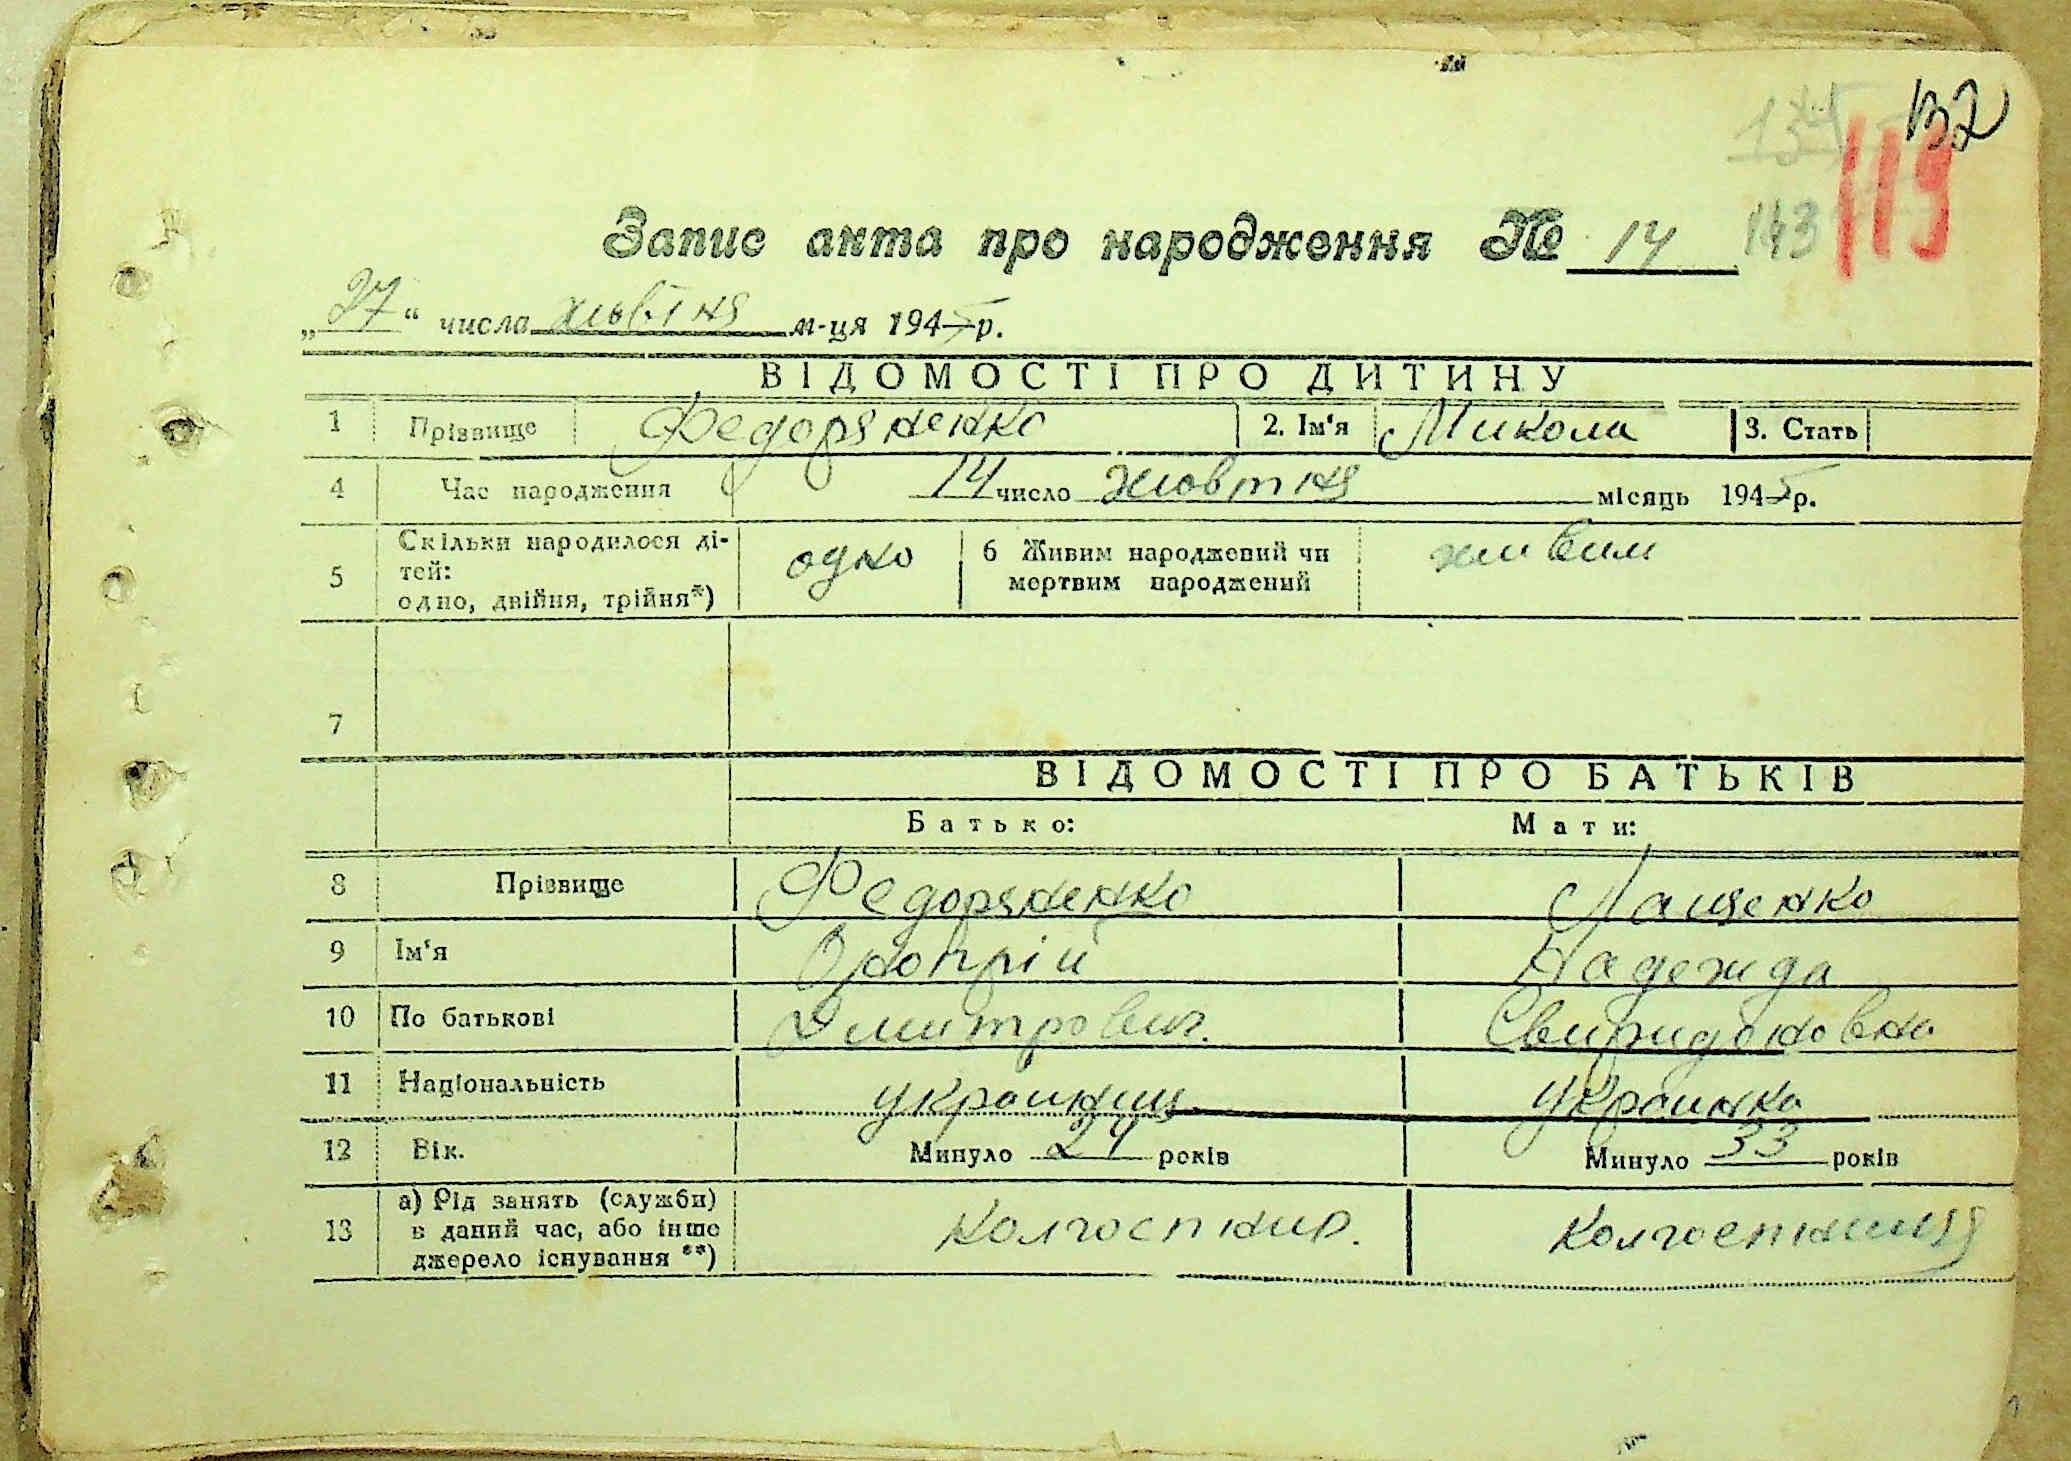 132
143 113
Запис акта про народження № 14
„27“ числа жовтня м-ця 1945 р.
ВІДОМОСТІ ПРО ДИТИНУ
1 Прізвище Федоряненко 2. Ім'я Микола 3. Стать
4 Час народження 14 число жовтня місяць 1945 р.
5 Скільки народилося ді-
тей:
одно, двійня, трійня*) одно 6 Живим народжений чи
мертвим народжений живим
7
ВІДОМОСТІ ПРО БАТЬКІВ
Батько: Мати:
8 Прізвище Федоряненко Лащенко
9 Ім'я Онопрій Надежда
10 По батькові Дмитрович. Свиридоновна
11 Національність украинец украинка
12 Вік. Минуло 24 років Минуло 33 років
13 а) Рід занять (служби)
в даний час, або інше
джерело існування **) Колгоспник. Колгоспниця